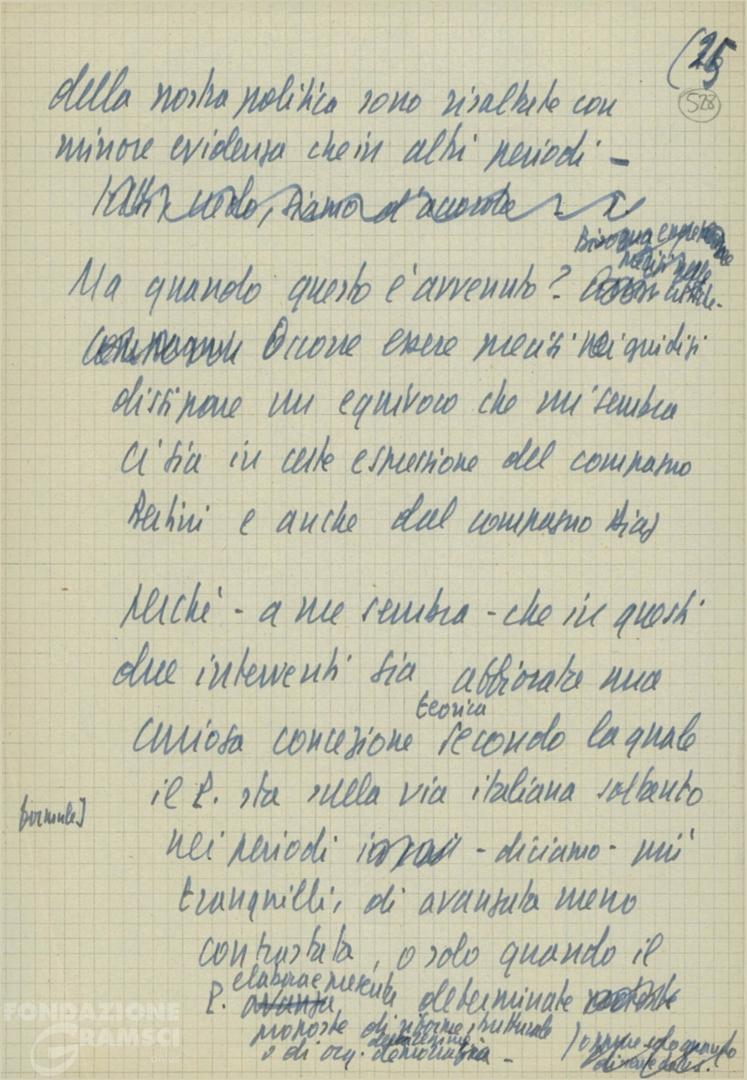 (25
528
della nostra politica sono risaltate con
minore evidenza che in altri periodi –
siamo d'accordo
Bisogna
Ma quando questo è avvenuto?
Occorre essere precisi nei giudizi
dissipare un equivoco che mi sembra
ci sia in certe espressione del compagno
Bertini e anche dal compagno Diaz
Perché - a me sembra - che in questi
due interventi sia affiorata una
teorica
curiosa concezione secondo la quale
il P. sta sulla via italiana soltanto
nei periodi - diciamo - più
tranquilli, di avanzata meno
contrastata, o solo quando il
elabora e presenta
P. avanza determinate
proposte di riforme strutturale
o di org. democratica –
oppure solo quando
FONDAZIONE
GRAMSCI